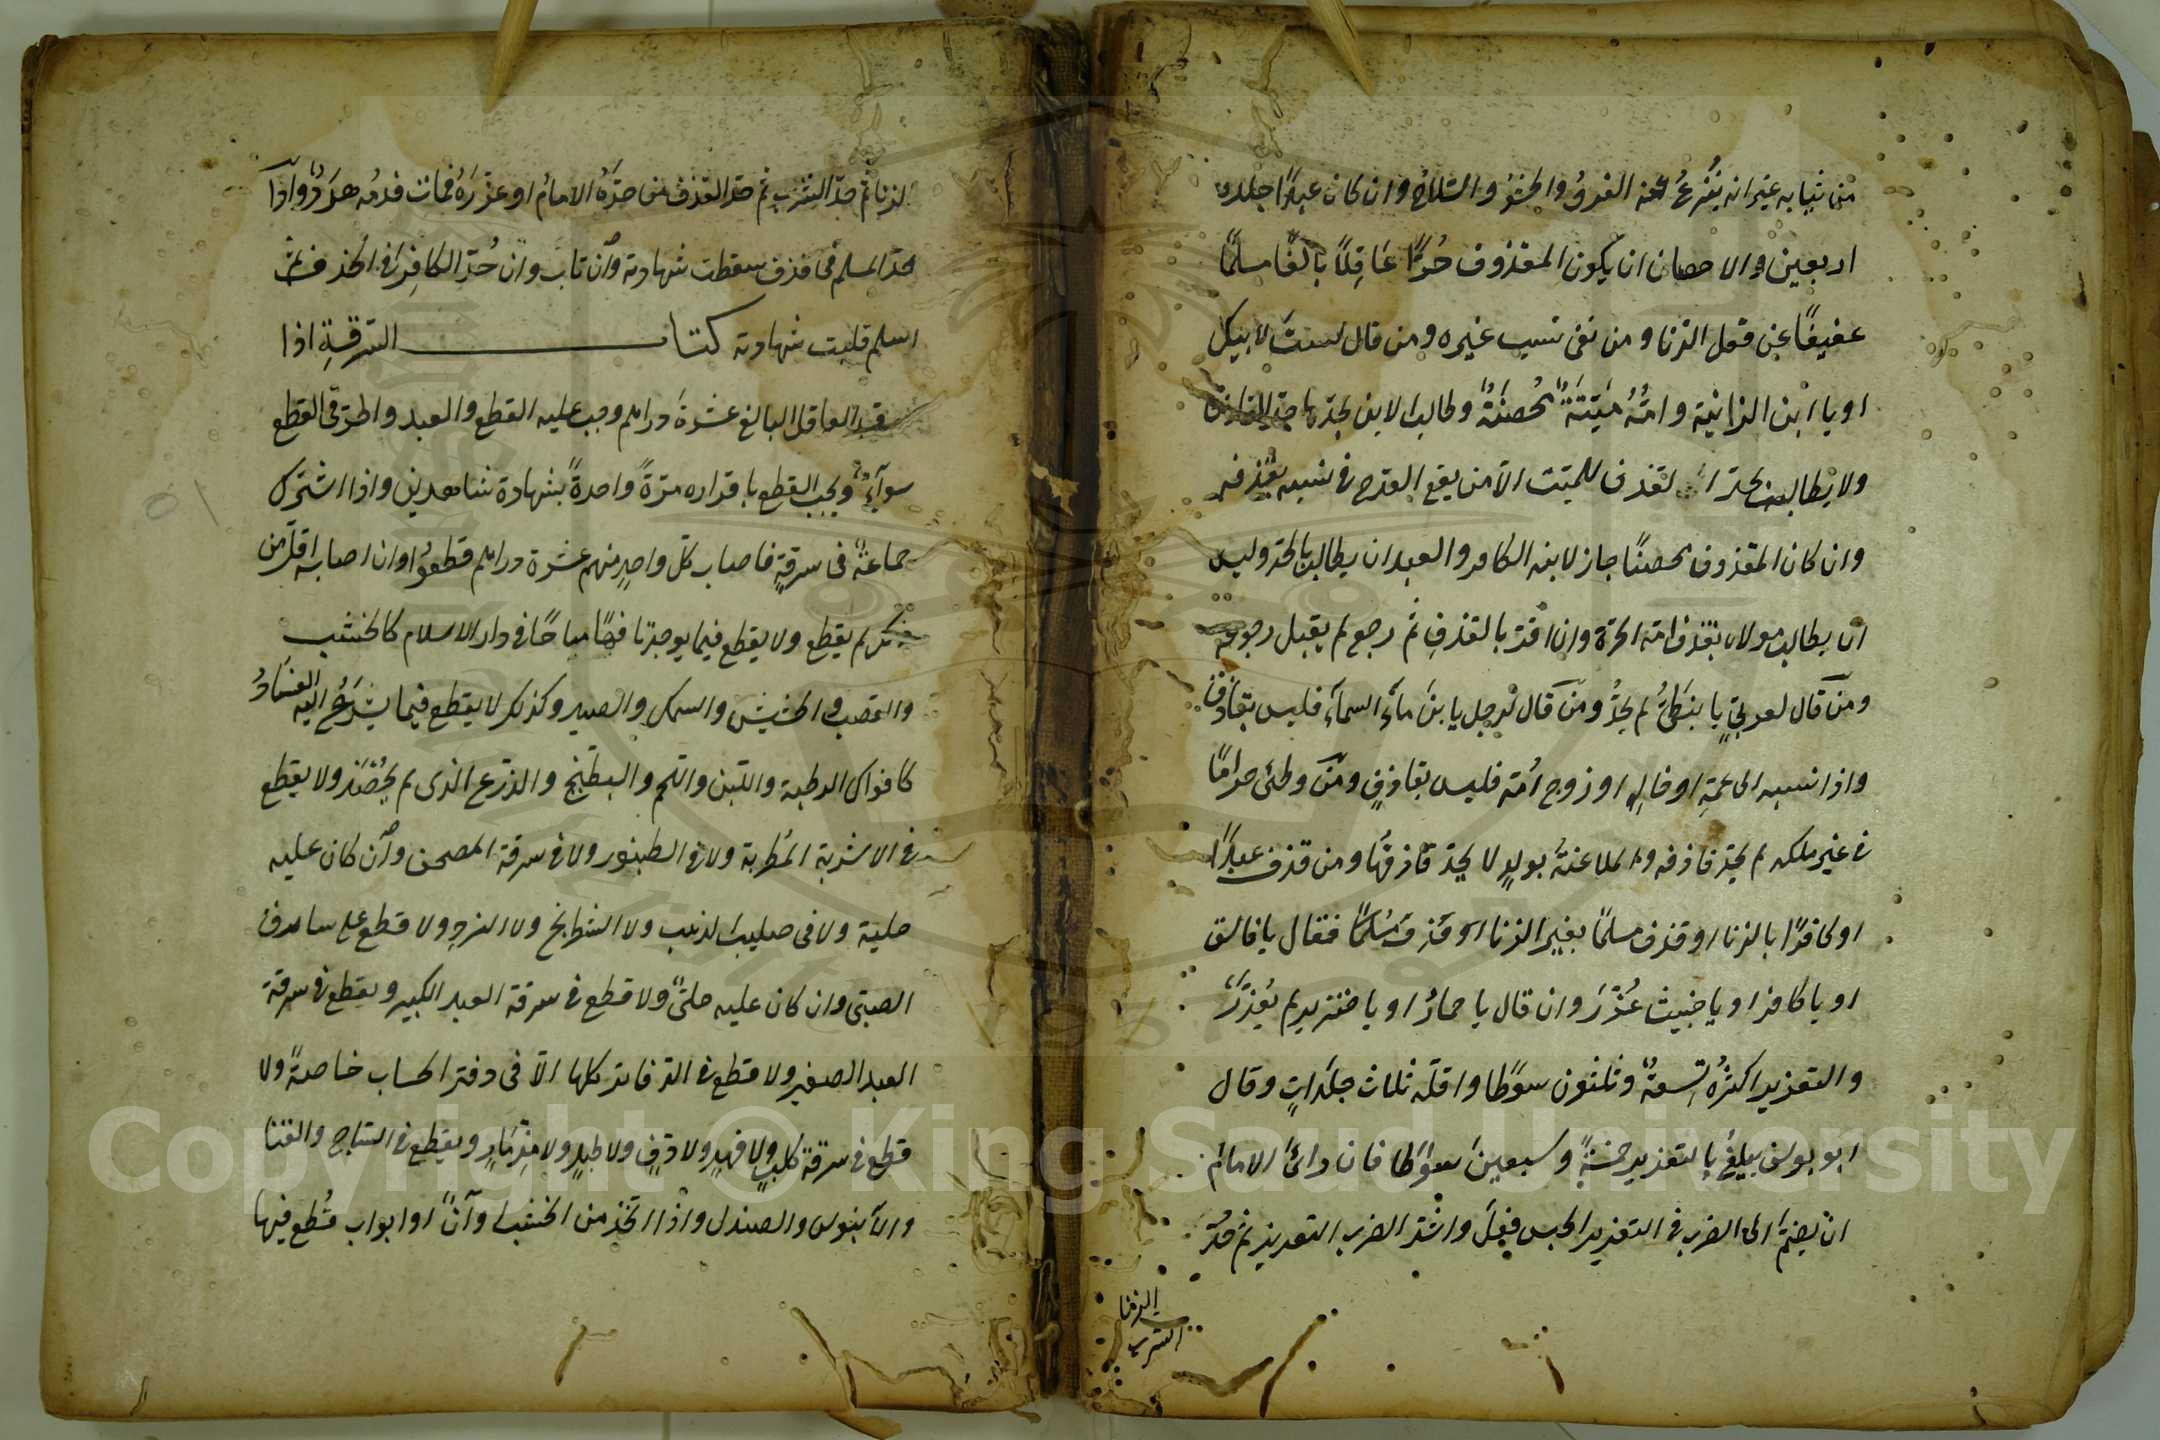 من ثيابه غير انه ينزع عنه الفرو والحشو والسلاح وان كان عبدا جلد
اربعين والاحصان ان يكون المقذوف حُرًّا عَاقِلًا بالغًا مسلمًا
عفيفًا عن فعل الزنا ومن نفى نسب غيره ومن قال لست لابيك
او يا ابن الزانية وامّهُ ميّتَةٌ محصنَةٌ وطالب الابن بحدّها حدّ القاذف
ولا يطالب بحدّ القذف للميّت الّا من يقع القدح في نسبه بقذفه
وان كان المقذوف محصنًا جاز لابنه الكافر والعبد ان يطالب بالحد وليس
ان يطالب مولاه بقذف امّه الحرّة وان اقرّ بالقذفِ ثم رجع لم يقبل رجوعه
ومن قال لعربيّ يا نبطيُّ لم يحدُّ ومن قال لرجل يا بنَ ماءِ السماءِ فليس بقاذفٍ
واذا نسبه الى عمّهِ او خالِهِ او زوج امّه فليس بقاذفٍ ومن وطئ حرامًا
في غير ملكه لم يحدّ قاذفه والملاعنةُ بولدٍ لا يحدّ قاذفُهَا ومن قذف عبدًا
او كافرًا بالزنا او قذف مسلمًا بغير الزنا او قذف مُسْلِمًا فقال يا فاسق
او يا كافر او يا خبيث عُزِّرَ وان قال يا حمارُ او يا خنزير لم يُعزَّرْ
والتعزير اكثرُهُ تِسعةٌ وثلثون سوطًا واقلّه ثلاث جلَدَاتٍ وقال
ابو يوسف يبلغُ بالتعزير خمسةً وسبعينَ سوطًا فان رائَ الامام
ان يضمَّ الى الضرب في التعزير الحبس فعلَ واشدّ الضرب التعزير ثم حدّ
الزنا
الشرب
الزنا ثم حدّ الشرب ثم حدّ القذف من حدّهُ الامامُ او عزّرَهُ فمات فدمُه هدَرٌ واذا
حدّ المسلم في قذف سقطت شهادته وان تاب وان حُدّ الكافِر في القذف ثمّ
اسلم قبلت شهادته كتاب السّرقةِ اذا
سرقَ العاقل البالغ عشرَةَ دراهم وجب عليه القطع والعبد والحرّ في القطع
سوآءٌ ويجب القطع باقراره مرّةً واحدةً بشهادة شاهدين واذا اشترك
جماعةٌ في سرقةٍ فاصاب كلّ واحدٍ منهم عشرة دراهم قطعوا وان اصابه اقلّ من
ذلك لم يقطع ولا يقطع فيما يوجد تافهًا مباحًا في دار الاسلام كالخشب
والقصب والحشيش والسمك والصيد وكذلك لا يقطع فيما يسْرَعُ اليه الفسَادُ
كالفواكه الرطبة واللبن واللحم والبطيخ والزرع الذى لم يُحْصَدْ ولا يقطع
في الاشربة المُطربة ولا في الطنبور ولا في سرقة المصحف وان كان عليه
حلية ولا في صليب الذهب ولا الشطرنج ولا النردِ ولا قطع على سارق
الصبىّ وان كان عليه حلىٌّ ولا قطع في سرقة العبد الكبير ويقطع في سرقة
العبد الصغير ولا قطع في الدفاتر كلها الّا في دفتر الحساب خاصةً ولا
قطع في سرقة كلبٍ ولا فهدٍ ولا دفٍ ولا طبلٍ ولا مِزْمَارٍ ويقطع في الساج والقنا
والآبنوس والصندل واذا اتّخذ من الخشب اوآنٍ او ابواب قُطع فيها